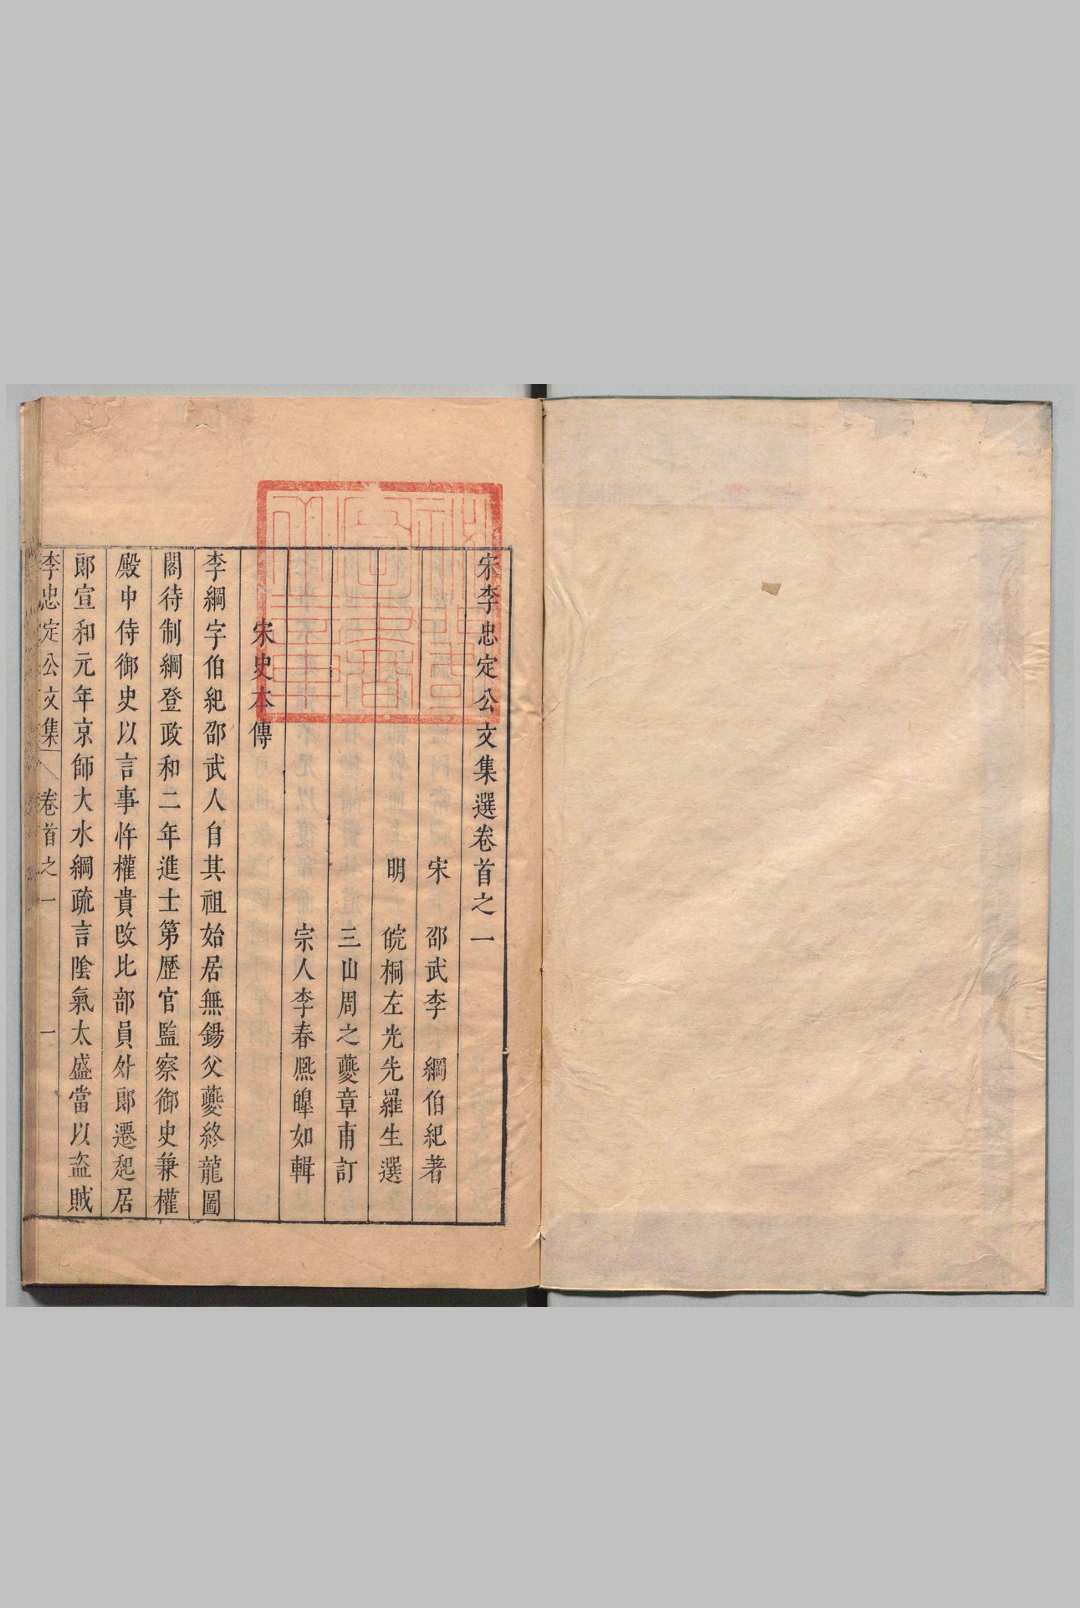 宋李忠定公文集選卷首之一
宋　邵武李　綱伯紀著
明　皖桐左光先羅生選
三山周之夔章甫訂
宗人李春熈皥如輯
宋史本傳
李綱字伯紀邵武人自其祖始居無錫父夔終龍圖
閣待制綱登政和二年進士第歷官監察御史兼權
殿中侍御史以言事忤權貴改比部員外郎遷起居
郎宣和元年京師大水綱疏言陰氣太盛當以盗賊
李忠定公文集　卷首之一　一